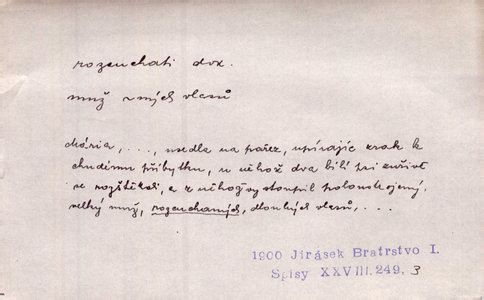 rozcuchati dok.
muž r-ných vlasů
Mária, . . ., usedla na pařez, upírajíc zrak k
chudému příbytku, u něhož dva bílí psi zuřivě
se rozštěkali, a z něhož vystoupil polonahý,
velký muž, rozcuchaných, dlouhých vlasů, . . .
1900 Jirásek Bratrstvo I.
Spisy XXVIII.249, 3